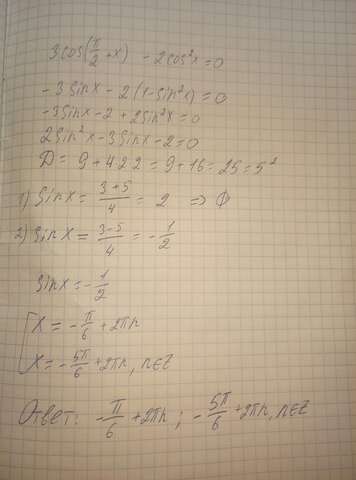 3cos(π/2 + x) - 2cos²x = 0
-3sinx - 2(1-sin²x) = 0
-3sinx - 2 + 2sin²x = 0
2sin²x - 3sinx - 2 = 0
D = 9 + 4·2·2 = 9 + 16 = 25 = 5²
1) sinx = (3+5)/4 = 2 => ∅
2) sinx = (3-5)/4 = -1/2
sinx = -1/2
[ x = -π/6 + 2πn
x = -5π/6 + 2πn, n∈Z
Ответ: -π/6 + 2πn ; -5π/6 + 2πn, n∈Z